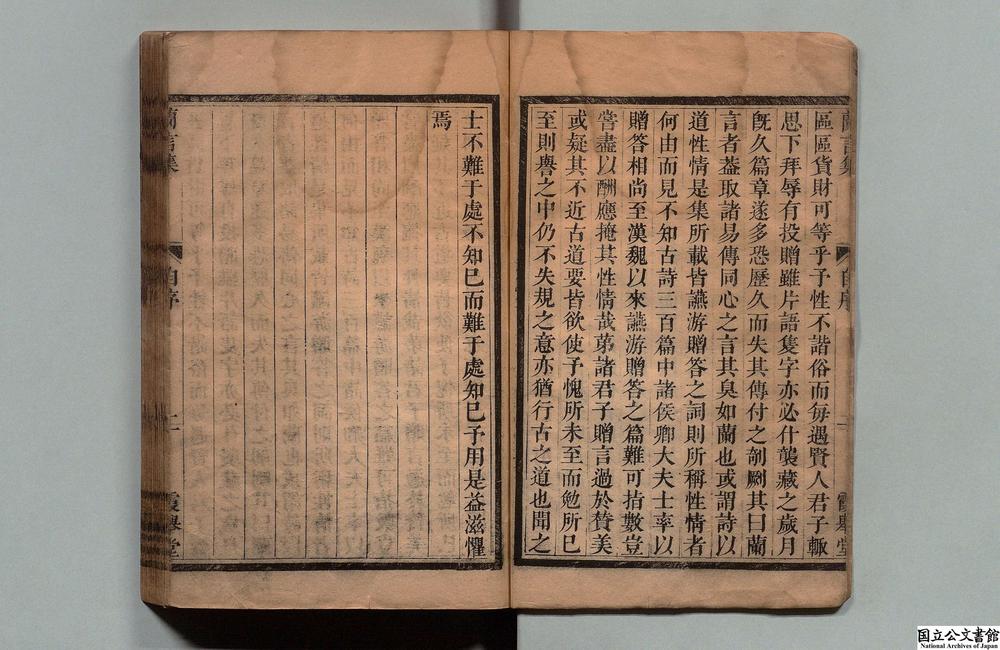 區區貨財可等乎予性不諧俗而每遇賢人君子輙
思下拜辱有投贈雖片語隻字亦必什襲藏之歲月
旣久篇章遂多恐歷久而失其傳付之剞劂其曰蘭
言者葢取諸易傳同心之言其臭如蘭也或謂詩以
道性情是集所載皆讌游贈答之詞則所稱性情者
何由而見不知古詩三百篇中諸侯卿大夫士率以
贈答相尚至漢魏以來讌游贈答之篇難可指數豈
嘗盡以酬應掩其性情哉苐諸君子贈言過於贊美
或疑其不近古道要皆欲使予愧所未至而勉所已
至則譽之中仍不失規之意亦猶行古之道也聞之
蘭言集
自序
一
霞舉堂
士不難于處不知已而難于處知已予用是益滋懼
焉
蘭言集
自序
二
霞舉堂
国立公文書館
National Archives of Japan